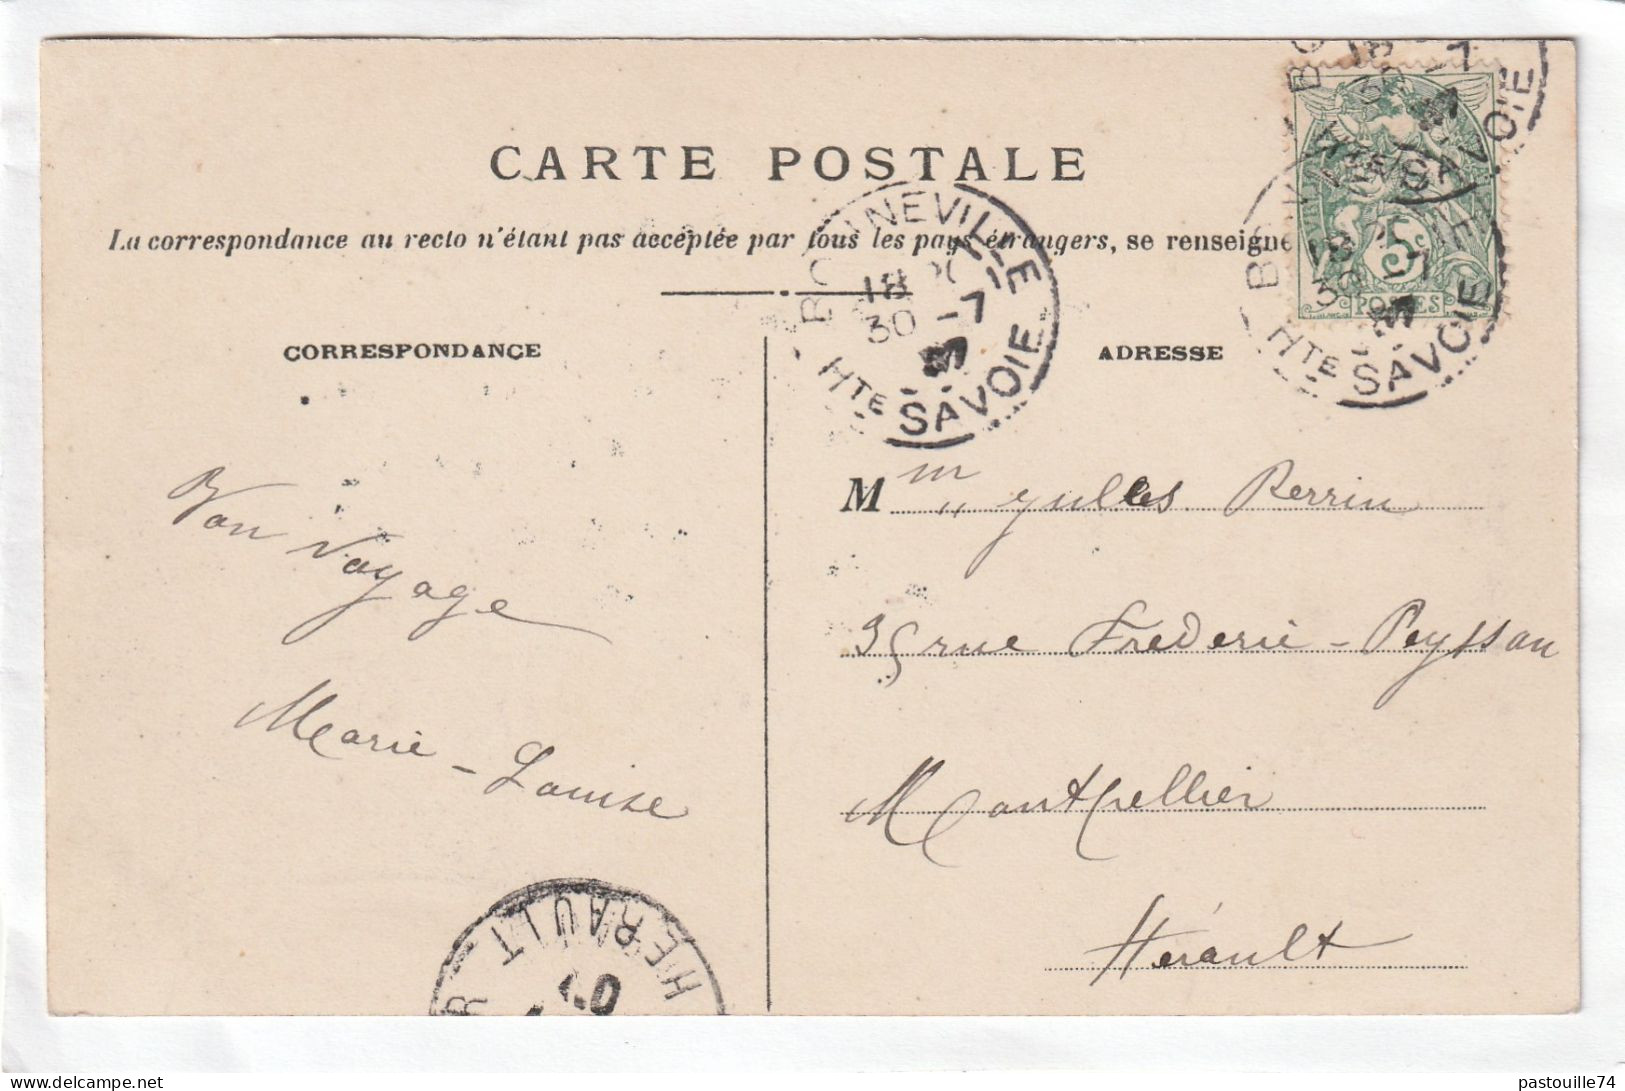 CARTE POSTALE
La correspondance au recto n'étant pas acceptée par tous les pays étrangers, se renseigne
CORRESPONDANCE
ADRESSE
BONNEVILLE
18
30 -7
HTE SAVOIE
BONNEVILLE
18
30 -7
HTE SAVOIE
18
30 -7
SAVOIE
5c
POSTES
Bon Voyage
Marie-Louise
Mm " Jules Perrin
35 rue Frederic-Peysson
Montpellier
Hérault
HERAULT
pastouille74